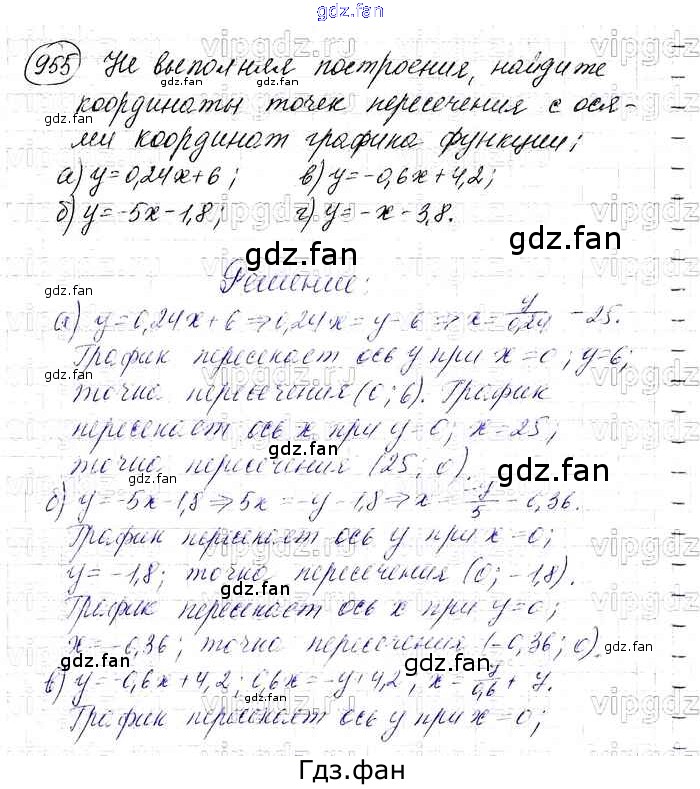 gdz.fan
955 Не выполняя построения, найдите
координаты точек пересечения с ося-
ми координат графика функции;
а) y=0,24x+6; в) y=-0,6x+4,2;
б) y=-5x-1,8; г) y=-x-3,8.
Решение:
а) y=0,24x+6 ⇒ 0,24x=y-6 ⇒ x=y/0,24 -25.
График пересекает ось y при x=0; y=6;
точка пересечения (0; 6). График
пересекает ось x при y=0; x=25;
точка пересечения (25; 0).
б) y=-5x-1,8 ⇒ 5x=-y-1,8 ⇒ x=-y/5 -0,36.
График пересекает ось y при x=0;
y=-1,8; точка пересечения (0; -1,8).
График пересекает ось x при y=0;
x=-0,36; точка пересечения (-0,36; 0).
в) y=-0,6x+4,2; 0,6x=-y+4,2; x=-y/0,6 + 7.
График пересекает ось y при x=0;
Гдз.фан